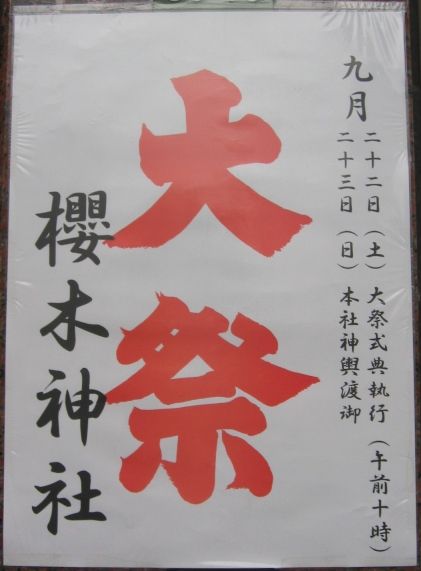 九月
二十二日（土）大祭式典執行（午前十時）
二十三日（日）本社神輿渡御
大祭
櫻木神社